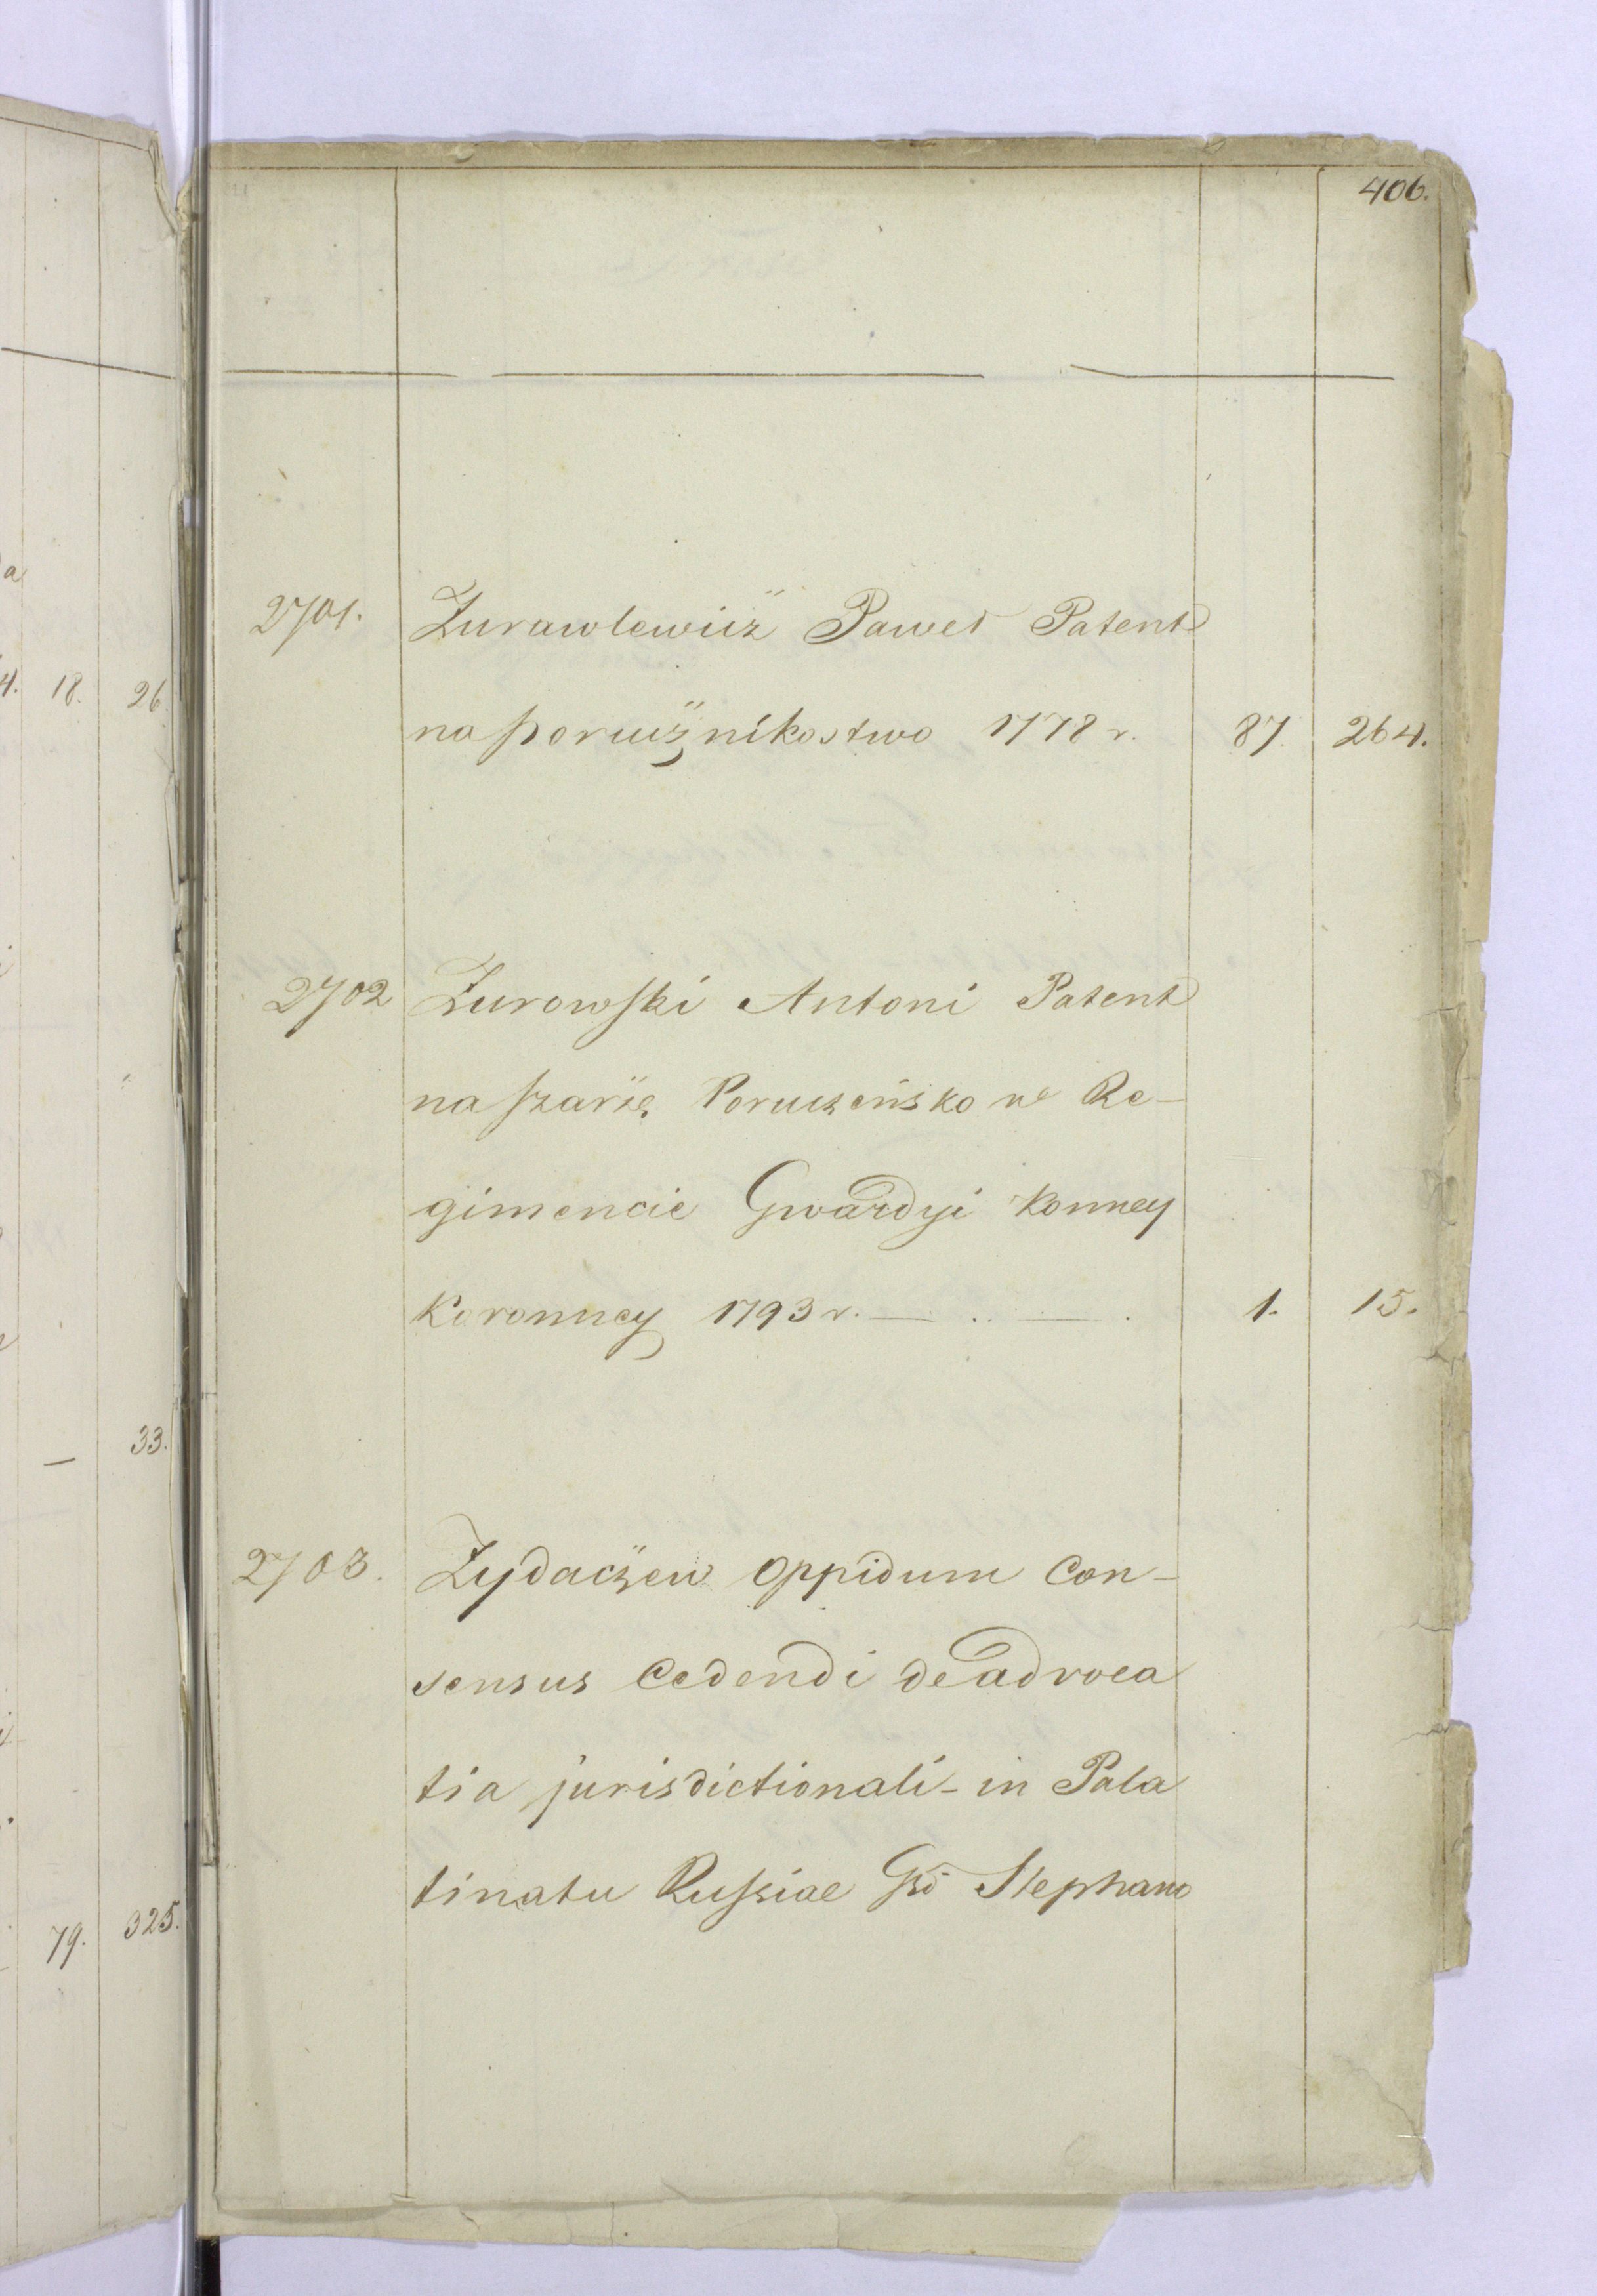 406.
2701. Zurawlewicz Paweł Patent
na porucznikostwo 1778 r. 87. 264.
2702 Zurowski Antoni Patent
na szarżę Poruczeńsko w Re-
gimencie Gwardyi Konney
Koronney 1793 r. — .. — . 1. 15.
2703. Zydaczew oppidum Con-
sensus Cedendi de advoca
tia jurisdictionali - in Pala
tinatu Russiae Gso Stephano
a
4. 18. 26.
— 33.
79. 325.